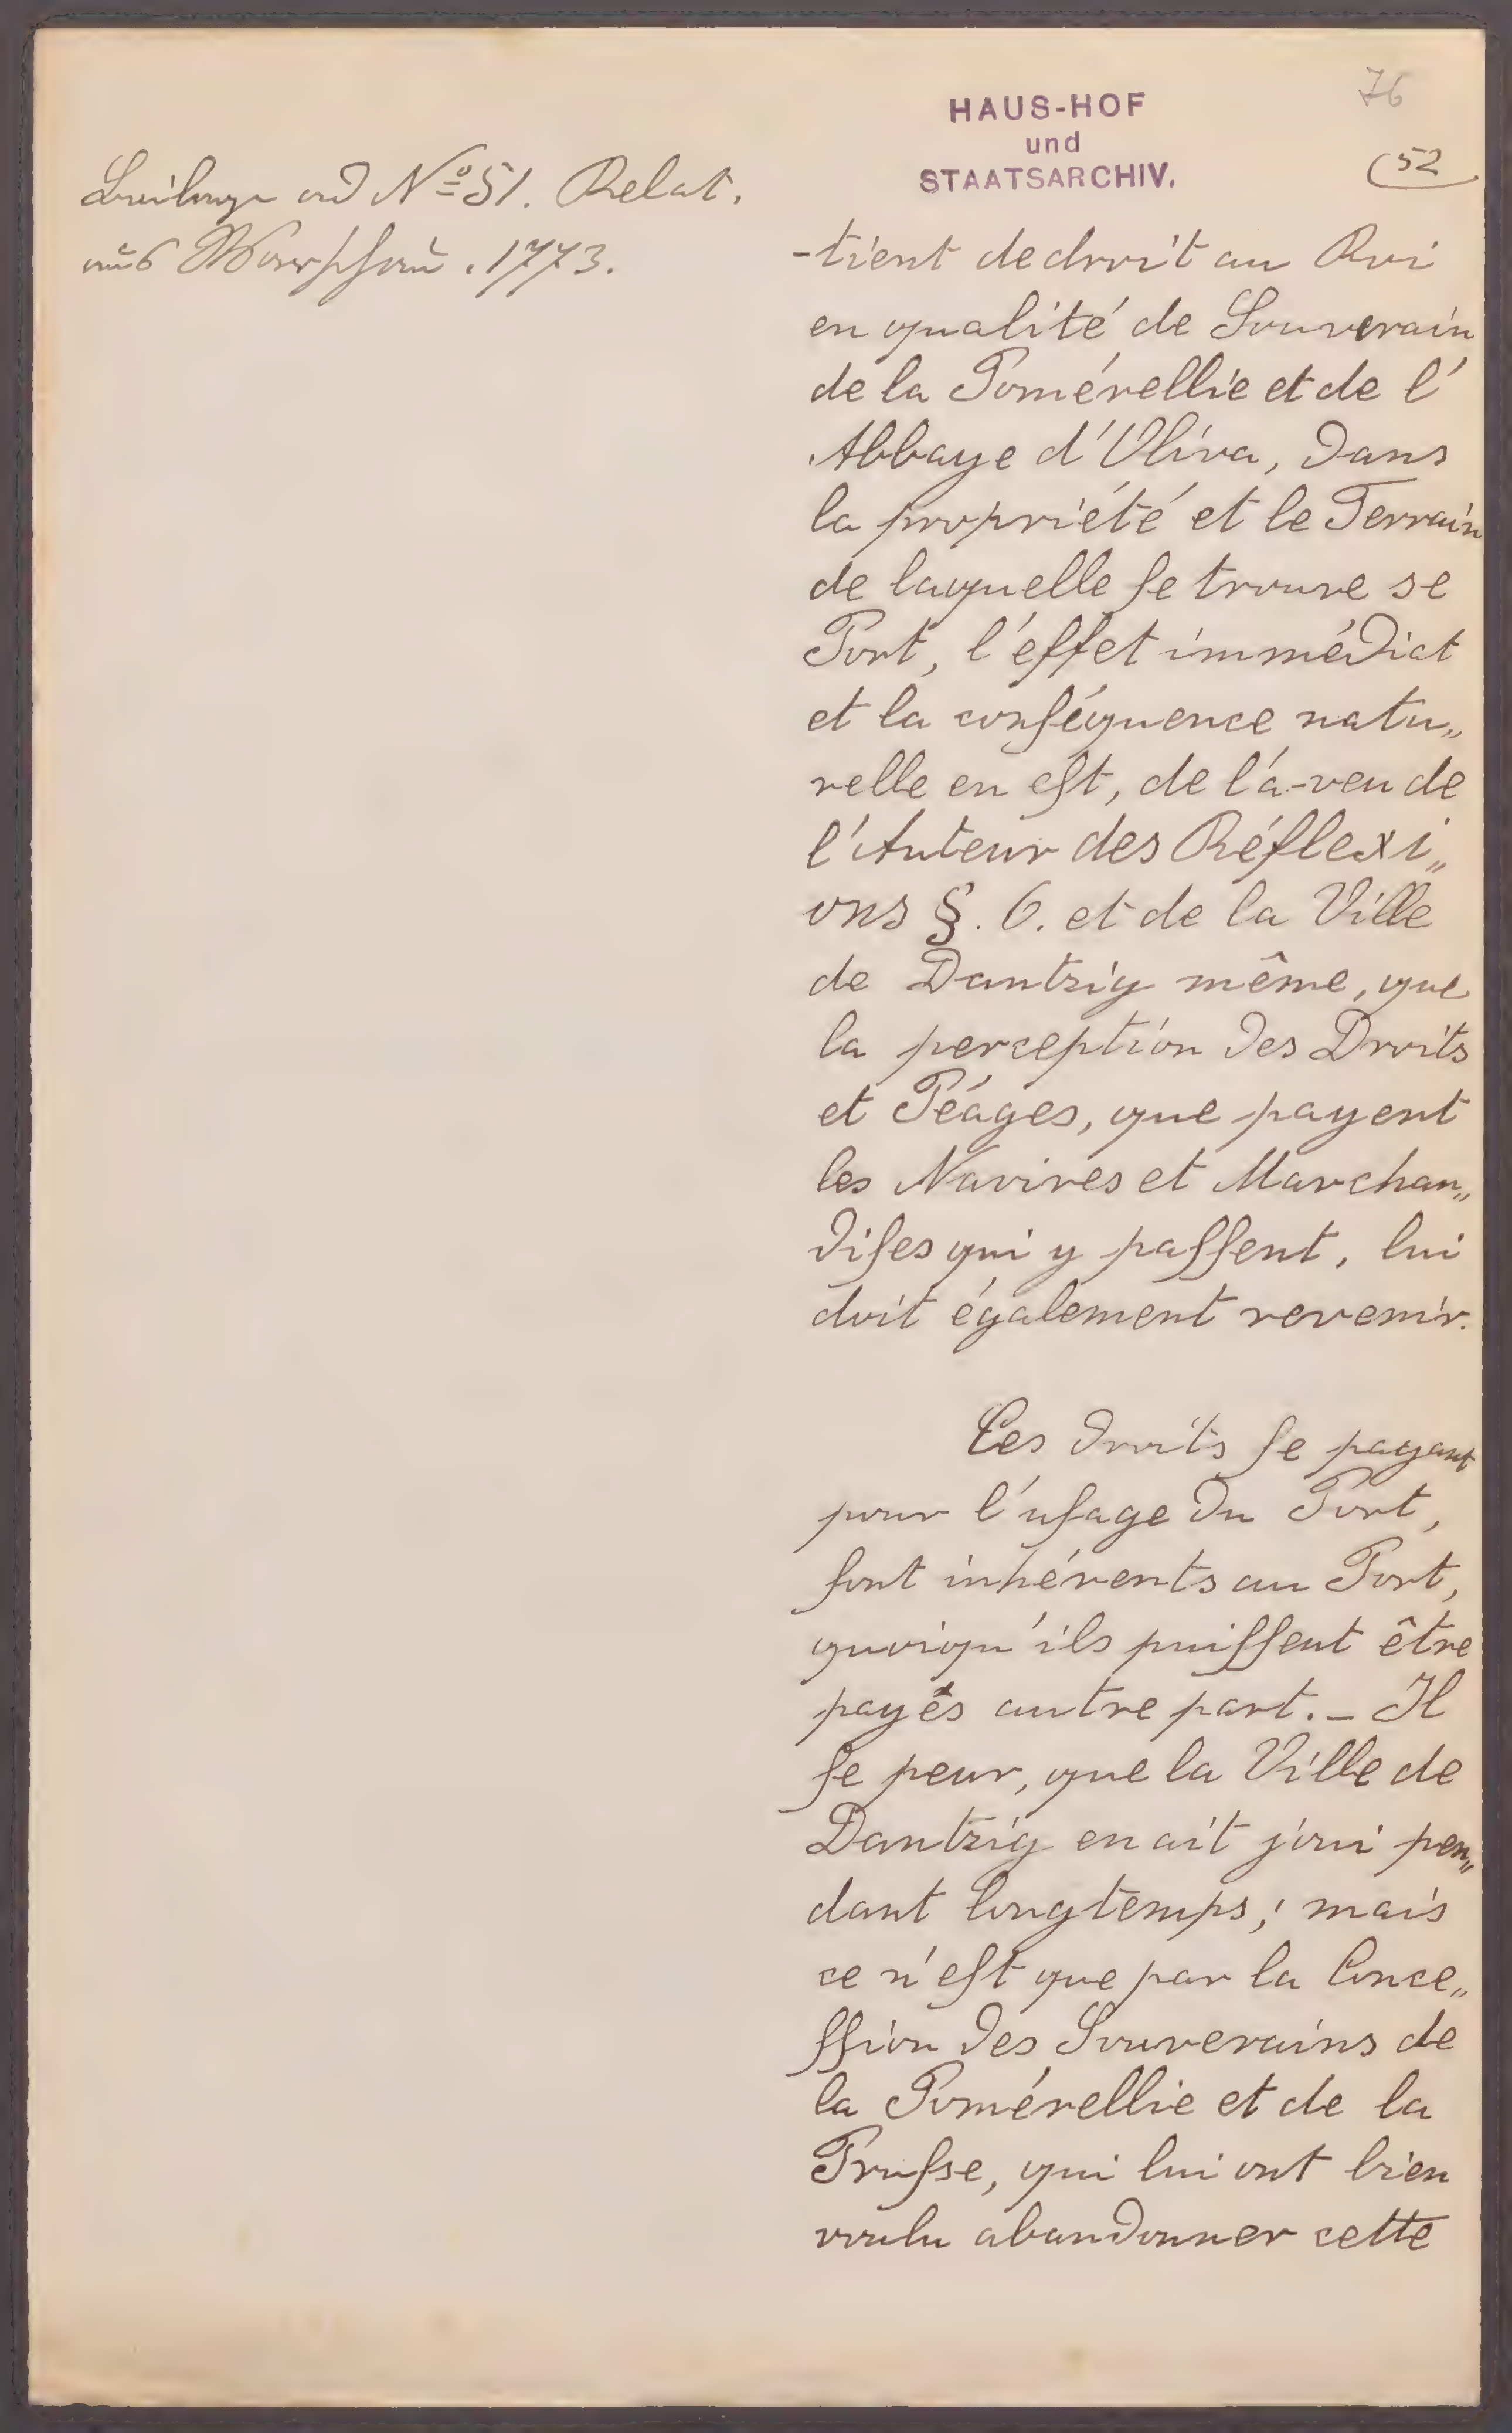 76
HAUS-HOF
und
STAATSARCHIV.
52
Beilage ad No 51. Relat.
aus Warschau. 1773.
-tient de droit au Roi
en qualité de Souverain
de la Pomérellie et de l'
Abbaye d'Oliva, dans
la propriété et le Terrain
de laquelle se trouve se
Port, l'éffet immédiat
et la conséquence natu„
relle en est, de l'á-veu de
l'Auteur des Réflexi„
ons §. 6. et de la Ville
de Dantzig même, que
la perception des Droits
et Péáges, que payent
les Navires et Marchan„
dises qui y passent, lui
doit également revenir.
Ces droits se payant
pour l'usage du Port,
sont inhérents au Port,
quoiqu'ils puissent être
payés autre part. – Il
se peur, que la Ville de
Dantzig en ait joui pen„
dant longtemps; mais
ce n'est que par la Conce„
ssion des Souverains de
la Pomérellie et de la
Prusse, qui lui ont bien
voulu abandonner cette